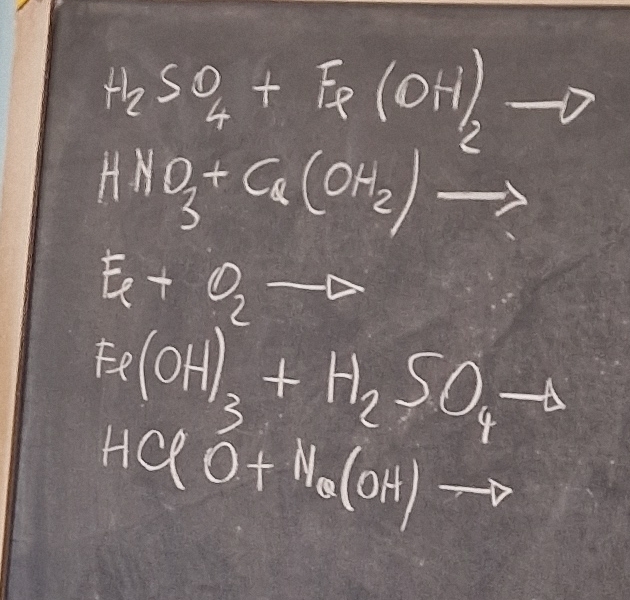 H₂SO₄ + Fe(OH)₂ →
HNO₃ + Ca(OH₂) →
Fe + O₂ →
Fe(OH)₃ + H₂SO₄ →
HClO + Na(OH) →